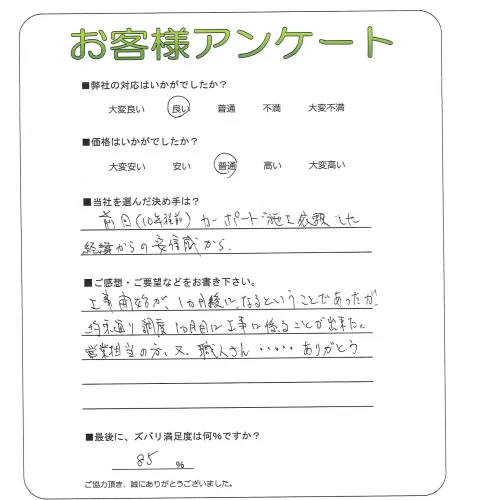 お客様アンケート
■弊社の対応はいかがでしたか？
大変良い 良い 普通 不満 大変不満
■価格はいかがでしたか？
大変安い 安い 普通 高い 大変高い
■当社を選んだ決め手は？
前回(10年程前) カーポート施工依頼した
経緯からの安信感から.
■ご感想・ご要望などをお書き下さい。
工事開始が、1ヵ月後になるということであったが
約束通り調度1ヵ月目に工事に係ることが出来た。
営業担当の方、又、職人さん ・・・・ ありがとう
■最後に、ズバリ満足度は何%ですか？
85 %
ご協力頂き、誠にありがとうございました。